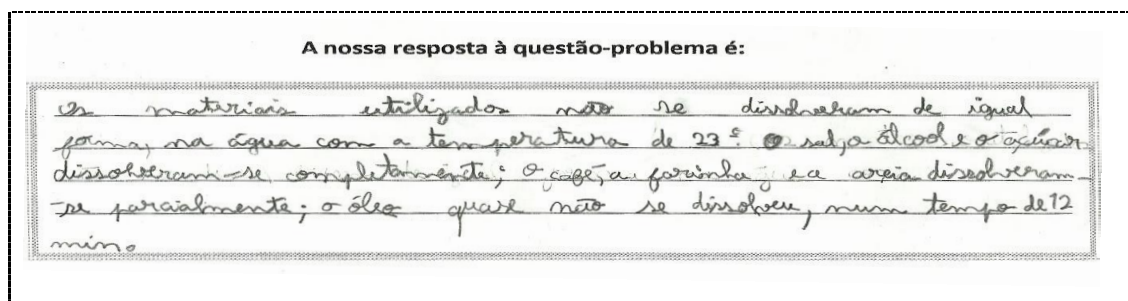 A nossa resposta à questão-problema é:
Os materiais utilizados não se dissolveram de igual
forma, na água com a temperatura de 23º. O sal, o álcool e o açúcar
dissolveram-se completamente; o café, a farinha e a areia dissolveram-
-se parcialmente; o óleo quase não se dissolveu, num tempo de 12
min.